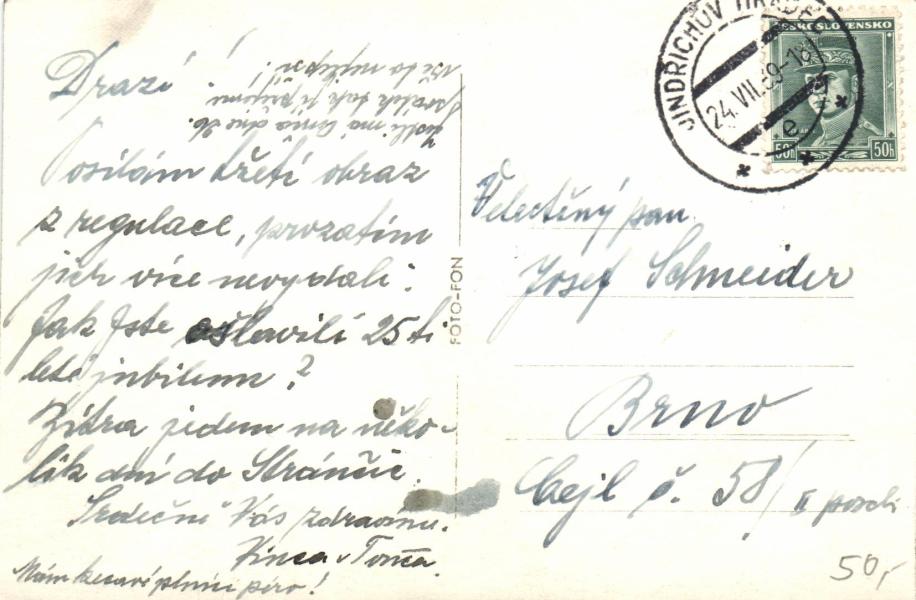 Drazí!
Posílám třetí obraz
z regulace, prozatím
jich více nevydali.
Jak jste oslavili 25ti
leté jubileum?
Zítra jedem na něko-
lik dní do Strančic.
Srdečně Vás zdravíme.
Vinca Tonča
Mám plnící péro!
má dne 26.
svátek tak jí přejeme
vše to nejlepší!
FOTO-FON
JINDŘICHŮV HRADEC
24.VII.39-18
e
ČESKOSLOVENSKO
50h
50h
Velectěný pan
Josef Schneider
Brno
Cejl č. 58/
II poschi
50,-